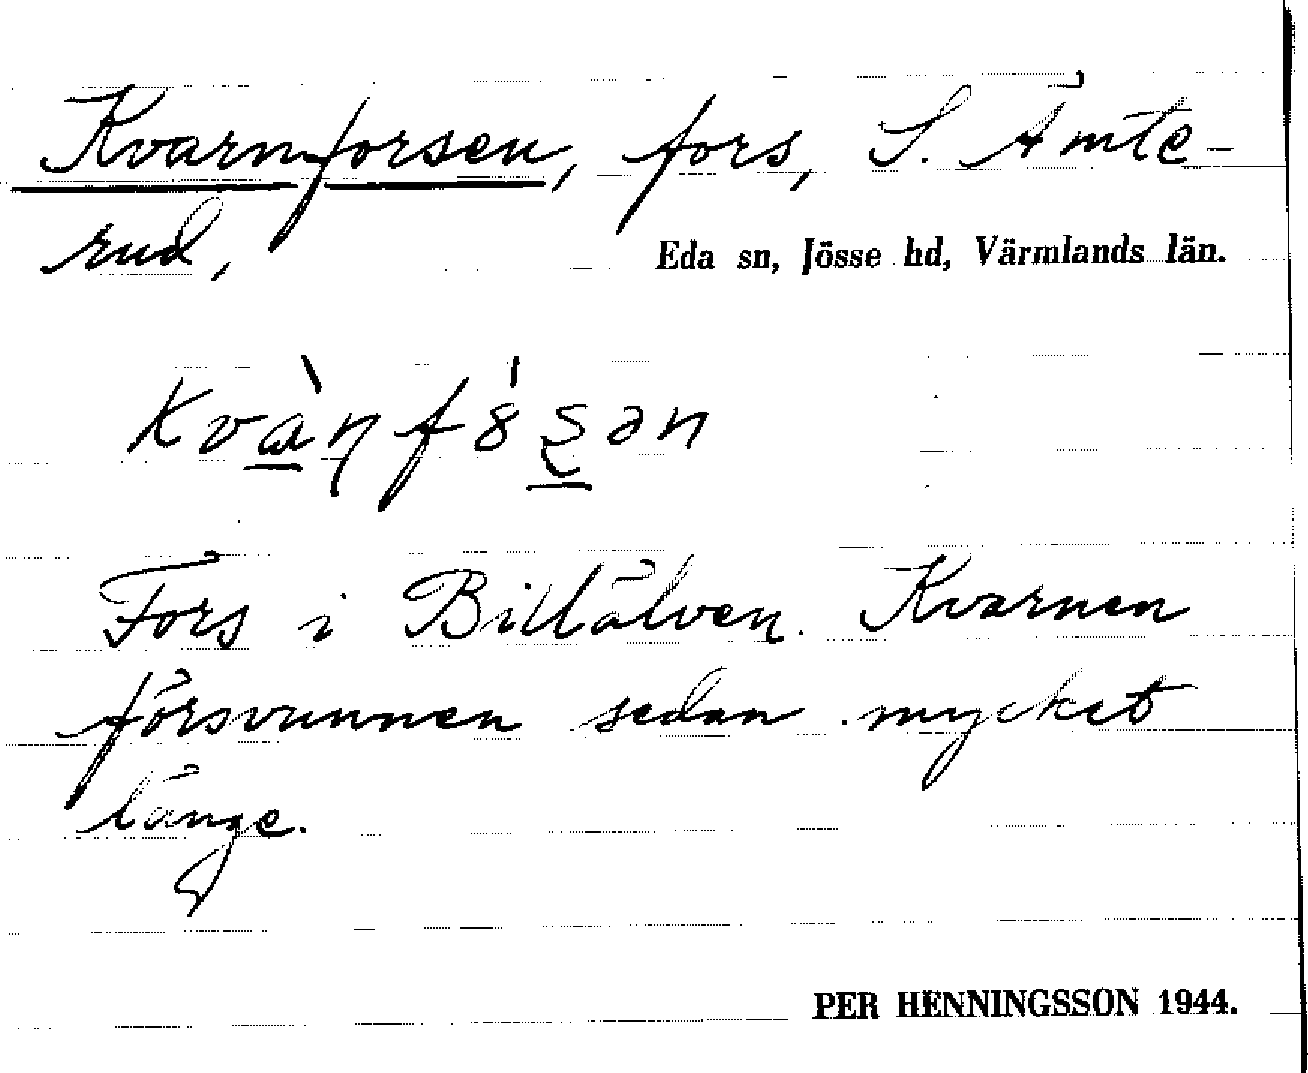 Kvarnforsen, fors, S. Ämte-
rud,
Eda sn, Jösse hd, Värmlands län.
Kvàɳfȣ́ʂən
Fors i Billälven. Kvarnen
försvunnen sedan mycket
länge.
PER HENNINGSSON 1944.